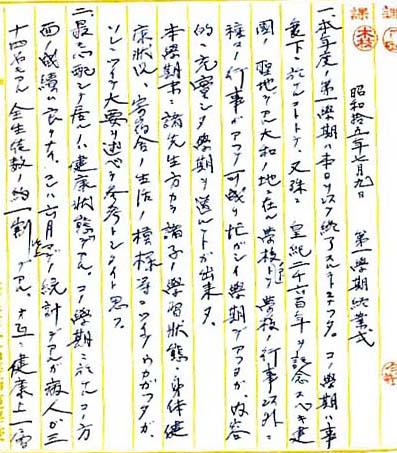 昭和拾五年七月九日　第一學期終業式
一、本年度ノ第一學期ハ本日ヲ以テ終了スルコトニナツタ。コノ學期ハ事
變下ニ於テノコトトテ、又殊ニ皇紀二千六百年ヲ記念スベキ建
國ノ聖地デアル大和ノ地ニ在ル學校トシテ學校ノ行事以外ニ
種々ノ行事ガアツテ可成リ忙ガシイ學期デアツタガ、内容
的ニ充實シタ學期ヲ送ルコトガ出來タ。
本學期末ニ諸先生方カラ諸子ノ學習狀態、身体健
康狀況、寄宿舎ノ生活ノ模様等ニツイテウカガツタガ、
ソレニツイテ大要ヲ述ベテ參考トシタイト思フ。
二、最モ心配シテ居ルノハ健康狀態デアル。コノ學期ニ於テハコノ方
面ノ成績ハ良クナイ。コレハ六月マデノ統計デアルガ病人ガ三
十四名デアル 全生徒數ノ約一割デアル。オ互ニ健康上一層